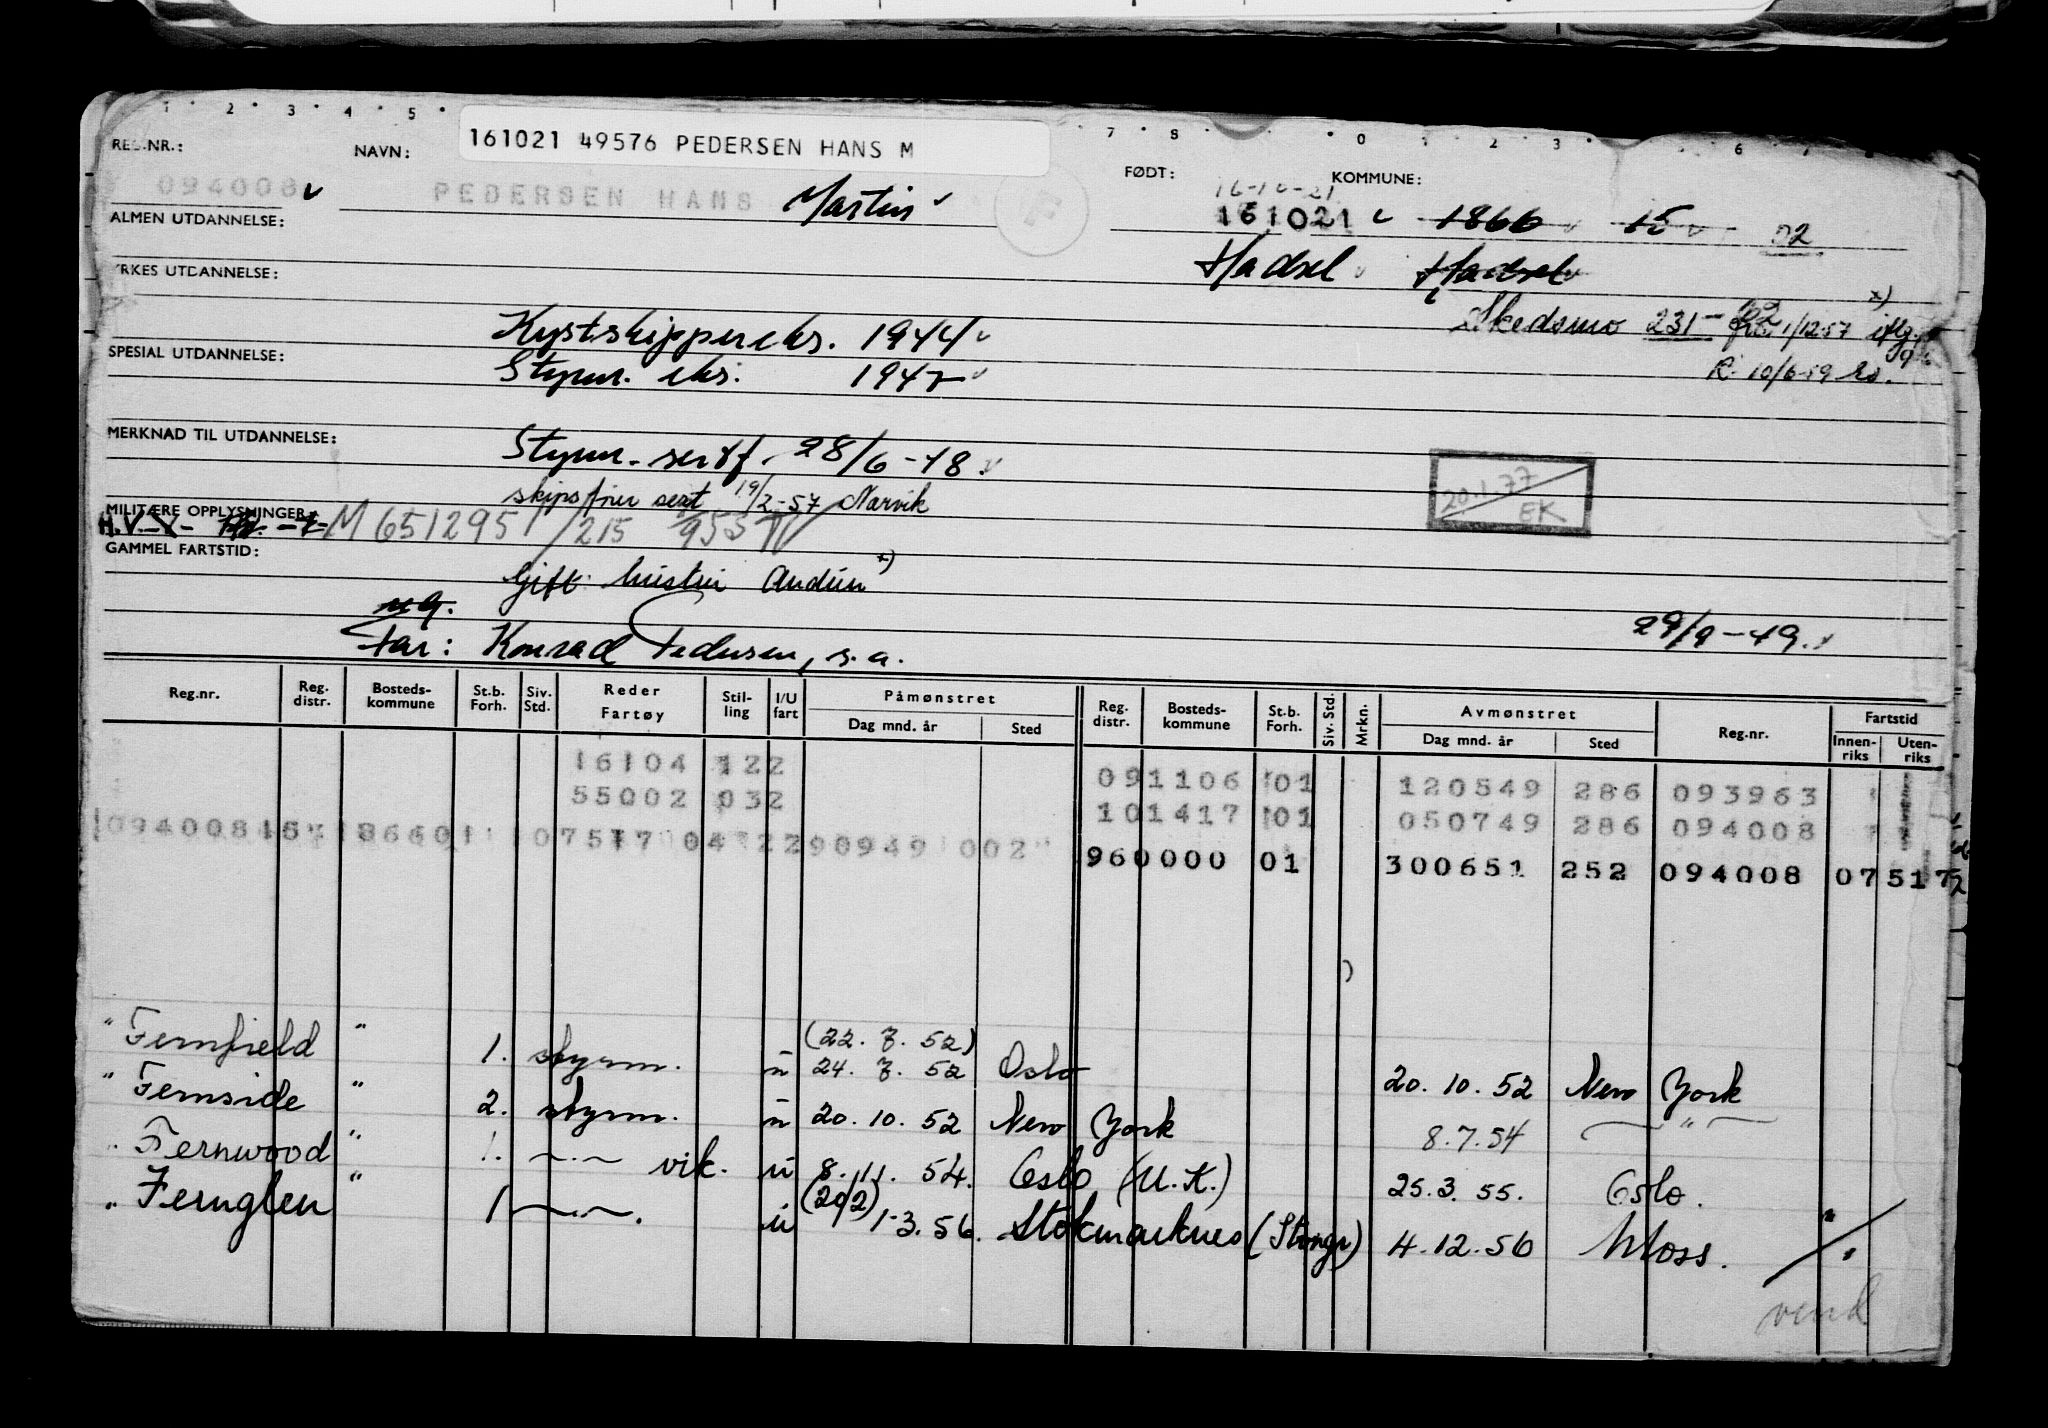 161021 49576 PEDERSEN HANS M
REG.NR.: NAVN: FØDT: KOMMUNE:
094008 PEDERSEN HANS Martin 16-10-21
161021 1866 15 02
ALMEN UTDANNELSE:
Hadsel Hadsel
YRKES UTDANNELSE:
Kystskippereks. 1944
Skedsmo 231-02 1/12-57 iflg.
SPESIAL UTDANNELSE:
Styrm. eks. 1947
R. 10/6-59
MERKNAD TIL UTDANNELSE:
Styrm. sertf. 28/6-48.
skipsfører sert 19/2-57 Narvik
20.1.77
EK
MILITÆRE OPPLYSNINGER:
H.V. M 651295 / 215
GAMMEL FARTSTID:
Gift: hustru Audun x)
ug.
Far: Konrad Pedersen, s.a.
29/9-49.
Reg.nr. Reg. distr. Bosteds-kommune St.b. Forh. Siv. Std. Reder Fartøy Stil-ling I/U fart Påmønstret Dag mnd. år Sted Reg. distr. Bosteds-kommune St.b. Forh. Siv. Std. Mrkn. Avmønstret Dag mnd. år Sted Reg.nr. Fartstid Innen-riks Uten-riks
16104 122 091106 01 120549 286 093963
55002 032 101417 01 050749 286 094008
094008 15 186601 07517 04 2290949 002 960000 01 300651 252 094008 07517
" Fernfield " 1. styrm. u (22.7.52) 24.7.52 Oslo 20.10.52 New York
" Fernside " 2. styrm. u 20.10.52 New York 8.7.54 — " —
" Fernwood " 1. —"— vik. u 8.11.54. Oslo (U.K.) 25.3.55. Oslo.
" Fernglen " 1 —"—. u (20/2) 1-3.56. Stokmarknes (Stongr) 4.12.56 Moss.
vend